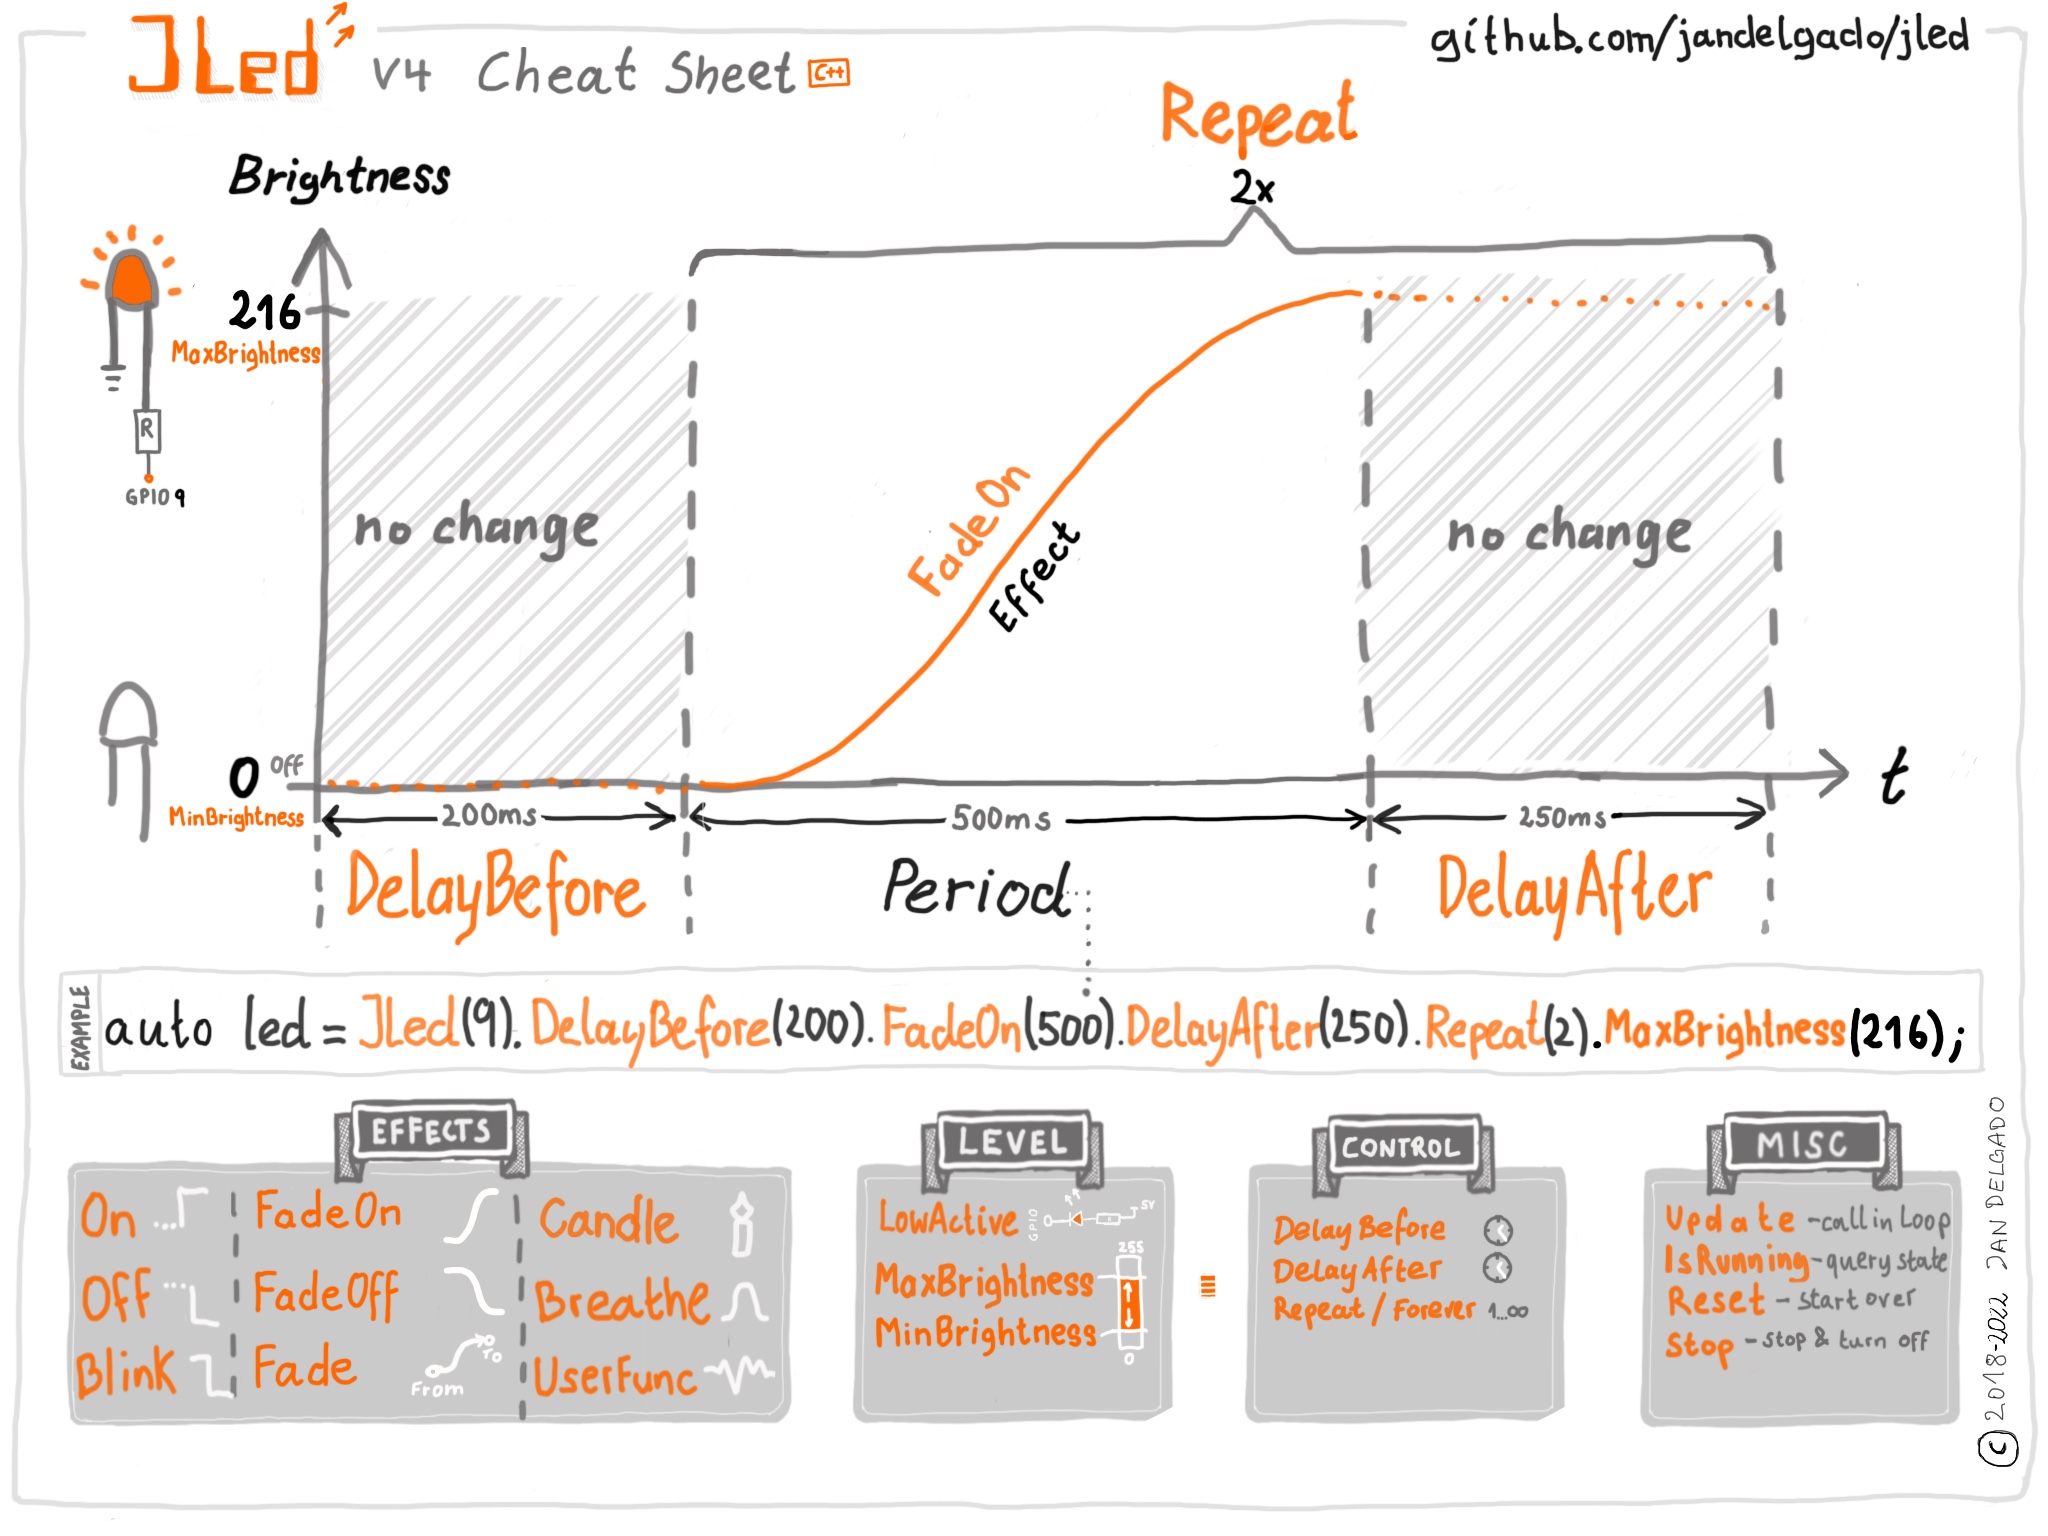 JLed V4 Cheat Sheet C++
github.com/jandelgado/jled
Repeat
2x
Brightness
216
MaxBrightness
R
GPIO 9
no change
FadeOn
Effect
no change
0 Off
MinBrightness
t
200ms
500ms
250ms
DelayBefore
Period
DelayAfter
EXAMPLE
auto led = JLed(9).DelayBefore(200).FadeOn(500).DelayAfter(250).Repeat(2).MaxBrightness(216);
EFFECTS
On
Off
Blink
FadeOn
FadeOff
Fade
From
To
Candle
Breathe
UserFunc
LEVEL
LowActive
GPIO
5V
255
MaxBrightness
MinBrightness
0
CONTROL
DelayBefore
DelayAfter
Repeat / Forever 1...∞
MISC
Update - call in Loop
IsRunning - query state
Reset - start over
Stop - stop & turn off
© 2018-2022 JAN DELGADO